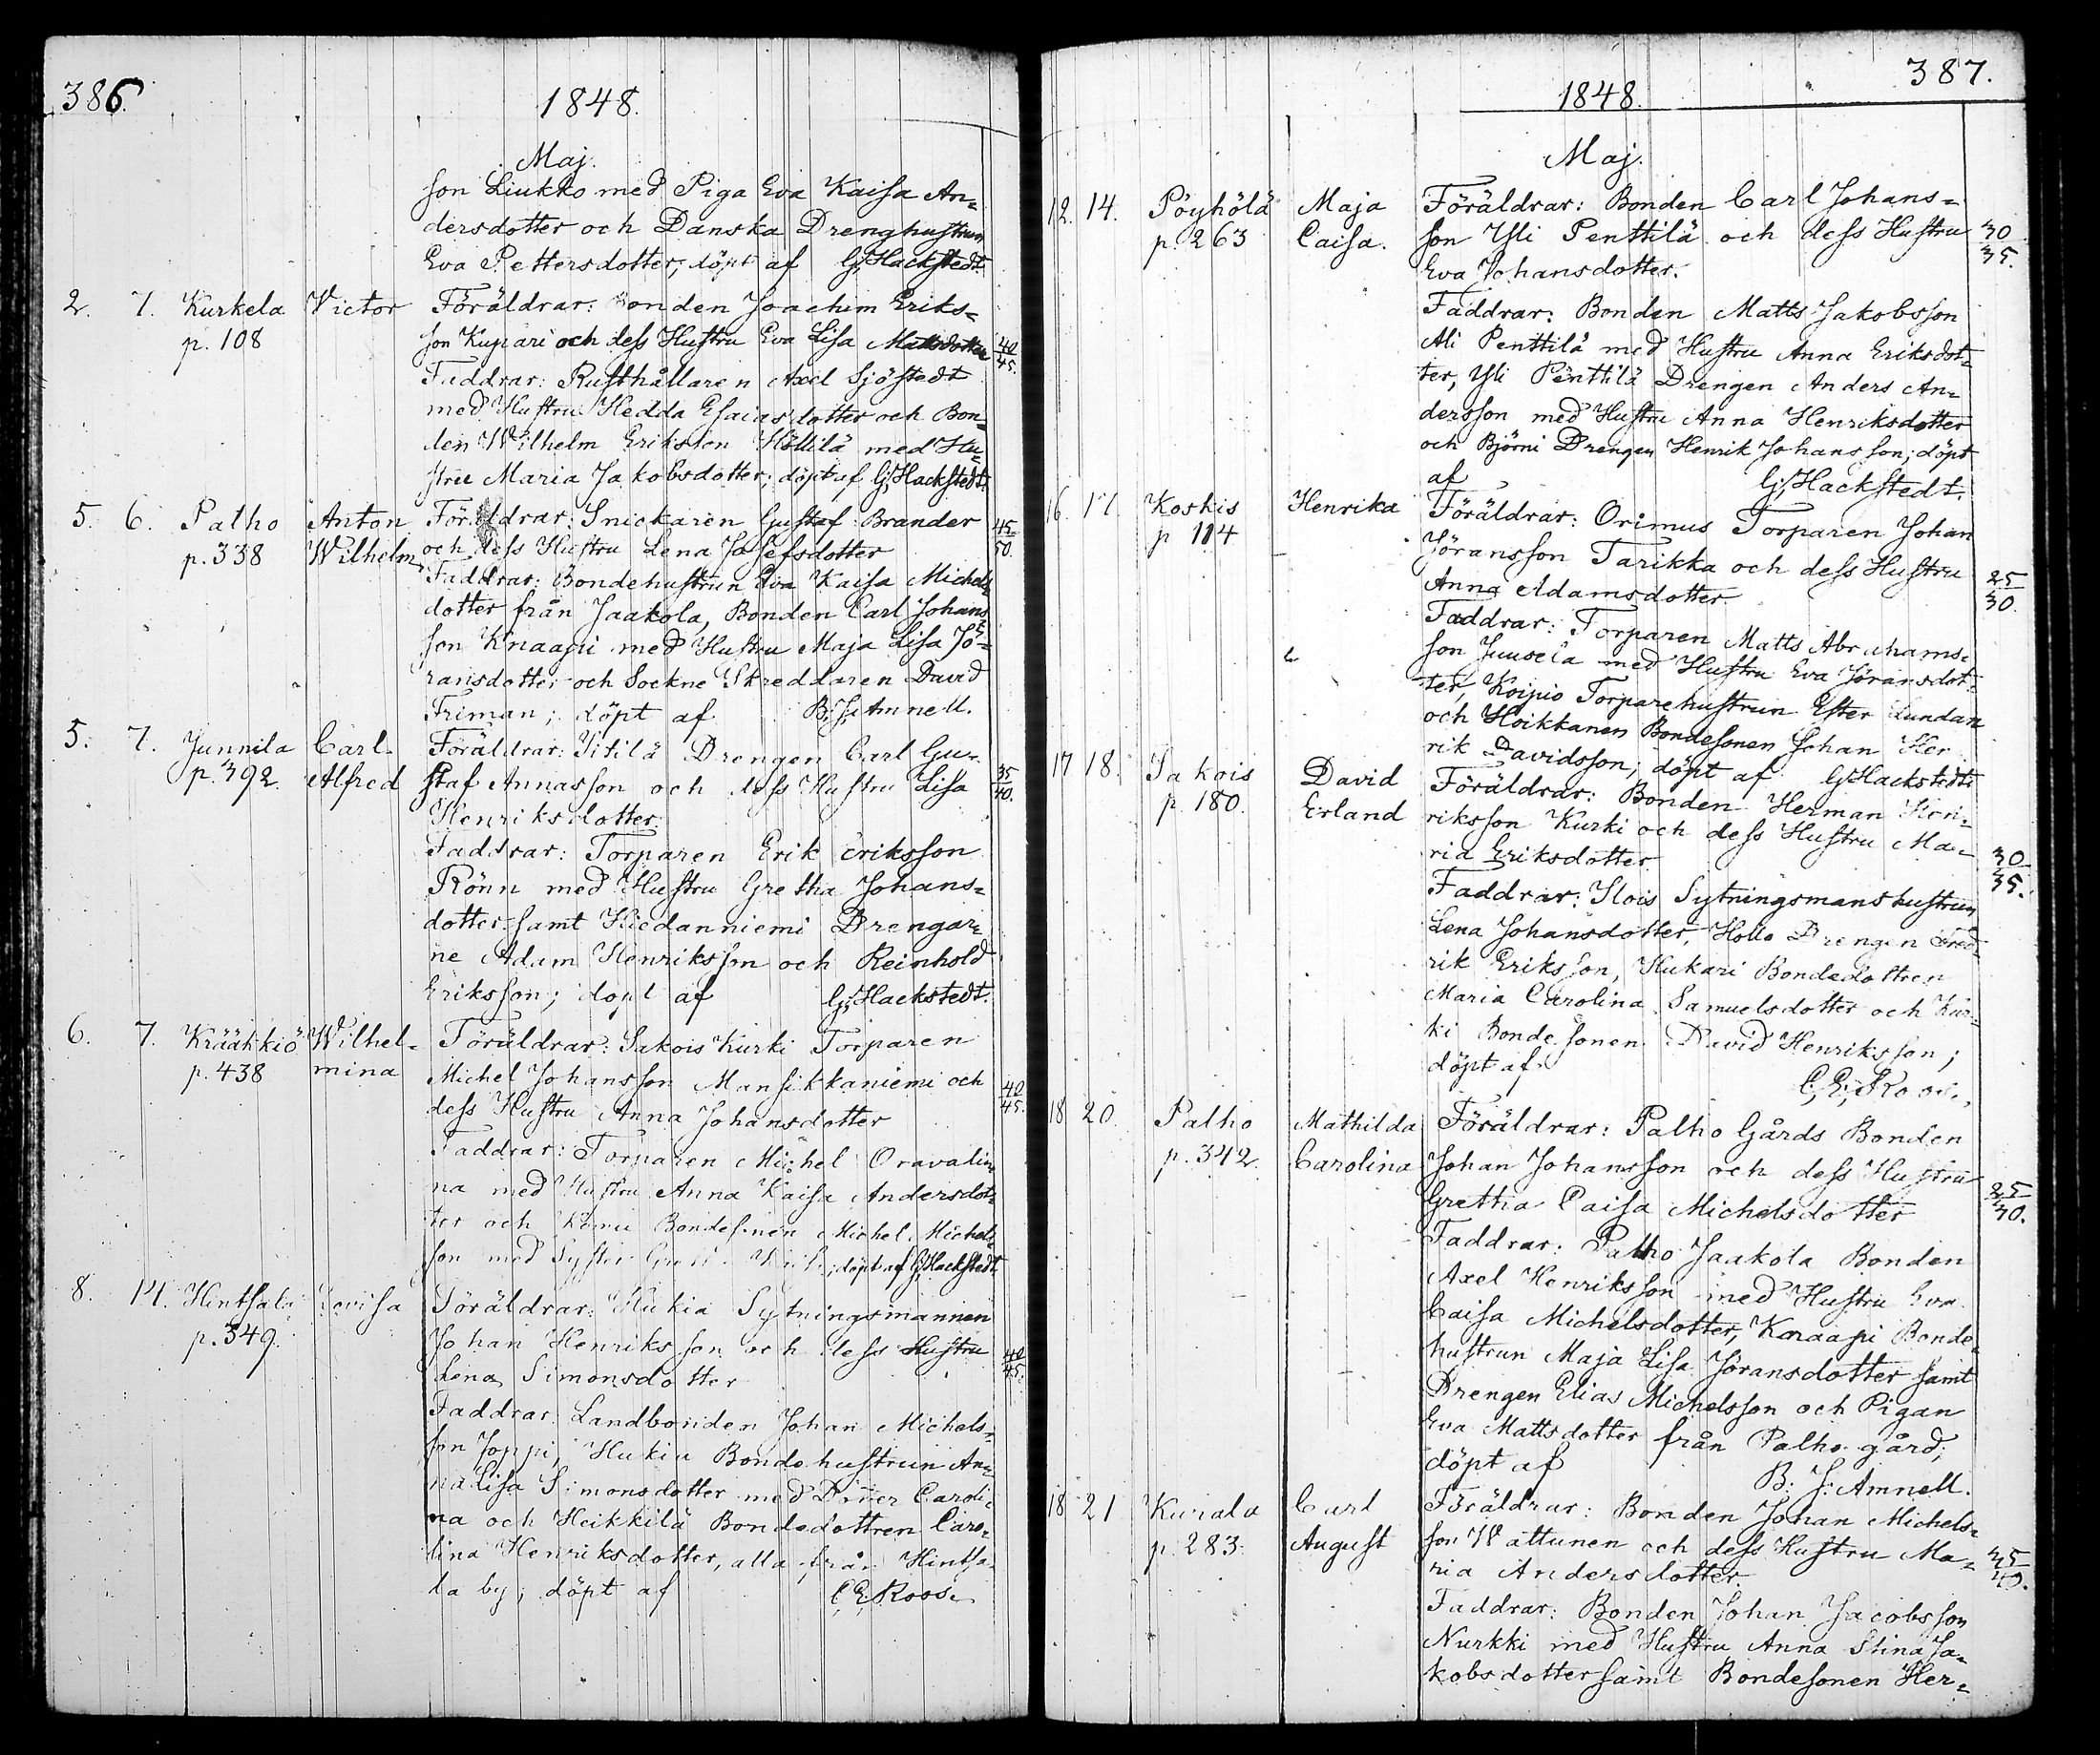 386.
1848.
Maj.
son Liukko med Piga Eva Kaisa An=
dersdotter och Danska Drenghustrun
Eva Pettersdotter, döpt af G. Hackstedt.
2. 7. Kurkela Victor Föräldrar: Bonden Joachim Eriks=
p. 108 son Kupari och dess Hustru Eva Lisa Mattsdotter 40/45.
Faddrar: Rusthållaren Axel Sjöstedt
med Hustru Hedda Esaiasdotter och Bon=
den Wilhelm Eriksson Höllilä med Hu=
stru Maria Jakobsdotter; döpt af G. Hackstedt.
5. 6. Palho Anton Föräldrar: Snickaren Gustaf Brander 45/50.
p. 338 Wilhelm och dess Hustru Lena Josefsdotter
Faddrar: Bondehustrun Eva Kaisa Michels=
dotter från Jaakola, Bonden Carl Johans=
son Knaapi med Hustru Maja Lisa Jö=
ransdotter och Sockne Skreddaren David
Friman; döpt af B. J. Amnell.
5. 7. Junnila Carl Föräldrar: Drengen Carl Gu=
p. 392. Alfred staf Annasson och dess Hustru Lisa 35/40.
Henriksdotter.
Faddrar: Torparen Erik Eriksson
Rönn med Hustru Gretha Johans=
dotter samt Hiedanniemi Drengar=
ne Adam Henriksson och Reinhold
Eriksson; döpt af G. Hackstedt.
6. 7. Krääkkiö Wilhel= Föräldrar: Sakois Kurki Torparen
p. 438 mina Michel Johansson Mansikkaniemi och 40/45.
dess Hustru Anna Johansdotter
Faddrar: Torparen Michel Oravalin=
na med Hustru Anna Kaisa Andersdot=
ter och Bondesonen Michel Michels=
son med Syster döpt af G. Hackstedt
8. 14. Hintsala Lovisa Föräldrar: Hukia Sytningsmannen
p. 349. Johan Henriksson och dess Hustru 40/45.
Lena Simonsdotter
Faddrar: Landbonden Johan Michels=
son Joppi, Hukia Bondehustrun An=
na Lisa Simonsdotter med Caroli=
na och Heikkilä Bondedottren Caro=
lina Henriksdotter, alla från Hintsa=
la by; döpt af C. E. Roos.
387.
1848.
Maj.
12. 14. Pöyhölä Maja Föräldrar: Bonden Carl Johans=
p. 263 Caisa. son Yli Penttilä och dess Hustru 30/35.
Eva Johansdotter.
Faddrar: Bonden Matts Jakobsson
Ali Penttilä med Hustru Anna Eriksdot=
ter, Yli Penttilä Drengen Anders An=
dersson med Hustru Anna Henriksdotter
och Björni Drengen Henrik Johansson; döpt
af G. Hackstedt.
16. 17. Koskis Henrika Föräldrar: Orimus Torparen Johan
p 114 Jöransson Tarikka och dess Hustru 25/30.
Anna Adamsdotter.
Faddrar: Torparen Matts Abrahams=
son Juusela med Hustru Eva Jöransdot=
ter, Koipio Torparehustrun Ester Lundan
och Hoikkanen Bondesonen Johan Hen
rik Davidsson; döpt af G. Hackstedt.
17 18. Sakois David Föräldrar: Bonden Herman Hen=
p. 180. Erland riksson Kurki och dess Hustru Ma= 30/35.
ria Eriksdotter
Faddrar: Ilois Sytningsmanshustrun
Lena Johansdotter, Hollo Drengen Fred=
rik Eriksson, Hukari Bondedottren
Maria Carolina Samuelsdotter och Kur=
ki Bondesonen David Henriksson;
döpt af C. E. Roos.
18 20. Palho Mathilda Föräldrar: Palho Gårds Bonden
p. 342. Carolina Johan Johansson och dess Hustru 25/30.
Gretha Caisa Michelsdotter
Faddrar: Palho Jaakola Bonden
Axel Henriksson med Hustru Eva
Caisa Michelsdotter, Knaapi Bonde=
hustrun Maja Lisa Jöransdotter samt
Drengen Elias Michelsson och Pigan
Eva Mattsdotter från Palho gård;
döpt af B. J. Amnell.
18 21 Kurala Carl Föräldrar: Bonden Johan Michels=
p. 283. August son Wattunen och dess Hustru Ma= 35/40.
ria Andersdotter.
Faddrar: Bonden Johan Jacobsson
Nurkki med Hustru Anna Stina Ja=
kobsdotter samt Bondesonen Her=